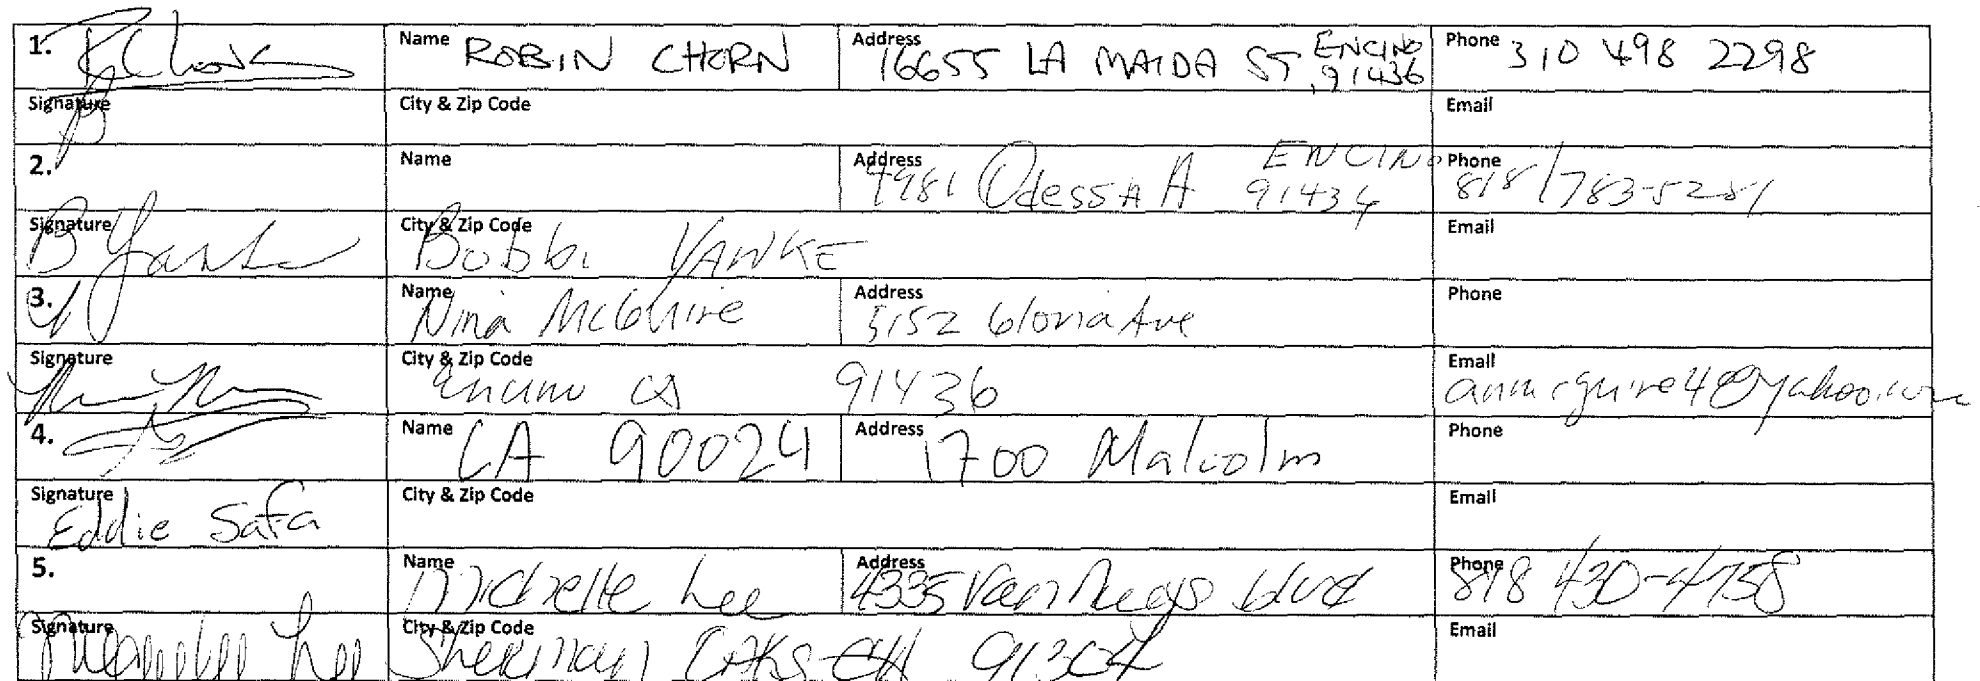 1. RChorn Name ROBIN CHORN Address 16655 LA MAIDA ST ENCINO 91436 Phone 310 498 2298
Signature City & Zip Code Email
2. Name Address 4981 Odessa A ENCINO 91436 Phone 818/783-5281
Signature B Yanke City & Zip Code Bobbi YANKE Email
3. Name Nina McGuire Address 5152 Gloria Ave Phone
Signature City & Zip Code Encino CA 91436 Email
4. Name LA 90024 Address 1700 Malcolm Phone
Signature Eddie Safa City & Zip Code Email
5. Name Michelle Lee Address 4335 Van Nuys blvd Phone 818 430-4758
Signature Lee City & Zip Code Sherman OAKS CA Email